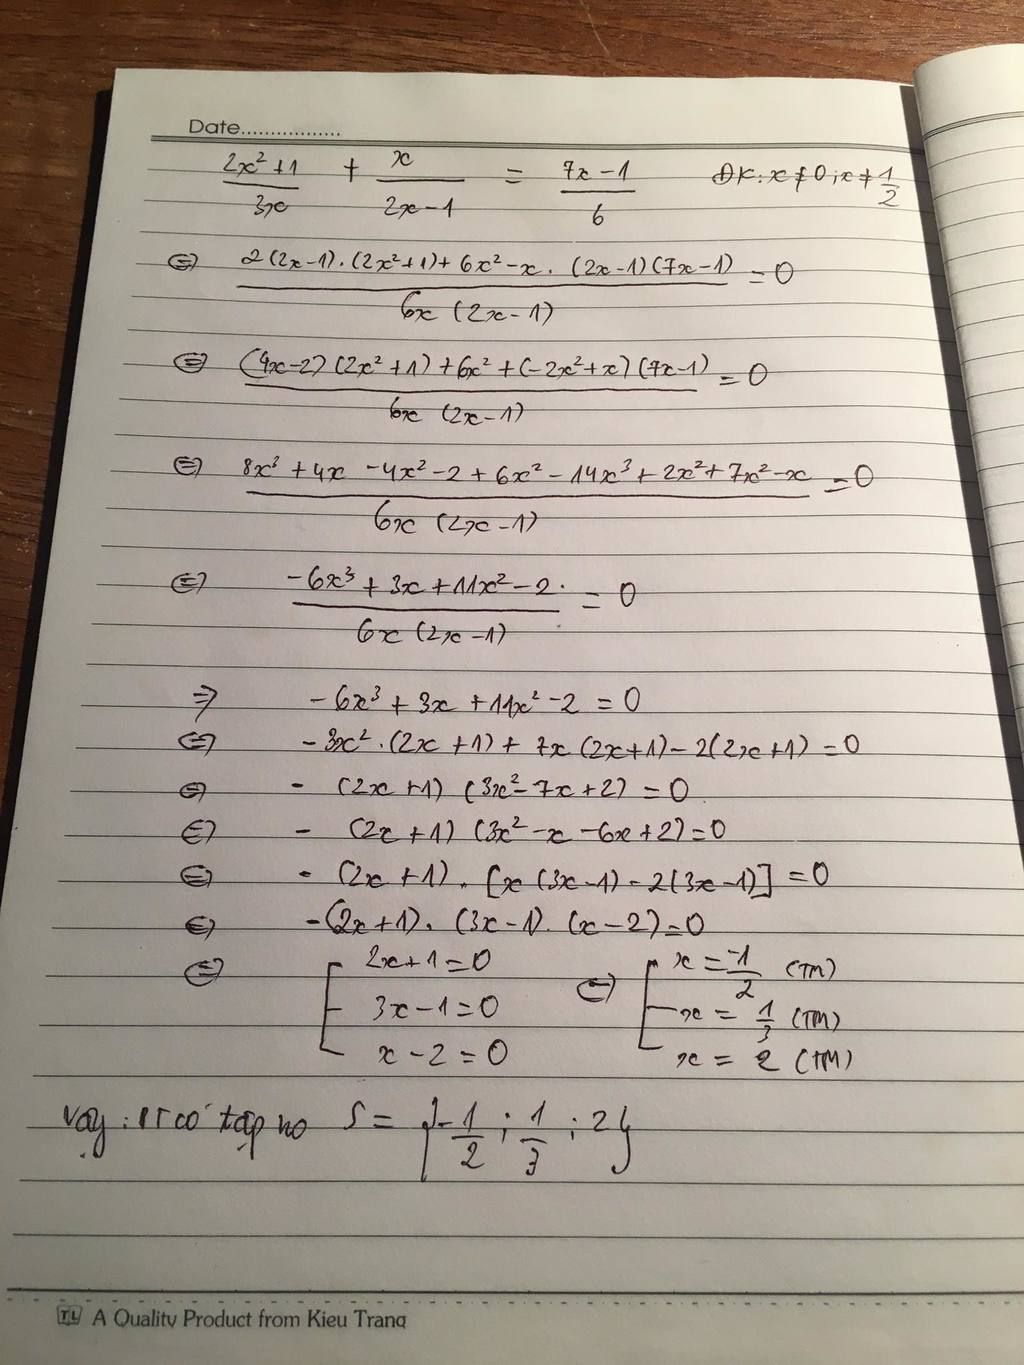 Date.................
2x² + 1 / 3x + x / 2x - 1 = 7x - 1 / 6 ĐK: x ≠ 0 ; x ≠ 1/2
⇔ 2(2x-1).(2x²+1) + 6x² - x.(2x-1)(7x-1) / 6x(2x-1) = 0
⇔ (4x-2)(2x²+1) + 6x² + (-2x²+x)(7x-1) / 6x(2x-1) = 0
⇔ 8x³ + 4x - 4x² - 2 + 6x² - 14x³ + 2x² + 7x² - x / 6x(2x-1) = 0
⇔ -6x³ + 3x + 11x² - 2 / 6x(2x-1) = 0
⇒ -6x³ + 3x + 11x² - 2 = 0
⇔ -3x².(2x+1) + 7x(2x+1) - 2(2x+1) = 0
⇔ -(2x+1)(3x² - 7x + 2) = 0
⇔ -(2x+1)(3x² - x - 6x + 2) = 0
⇔ -(2x+1).[x(3x-1) - 2(3x-1)] = 0
⇔ -(2x+1).(3x-1).(x-2) = 0
⇔ [ 2x+1 = 0 ⇔ [ x = -1/2 (TM)
3x-1 = 0 x = 1/3 (TM)
x-2 = 0 x = 2 (TM)
Vậy : PT có tập no S = {-1/2 ; 1/3 ; 2}
TL A Quality Product from Kieu Trang